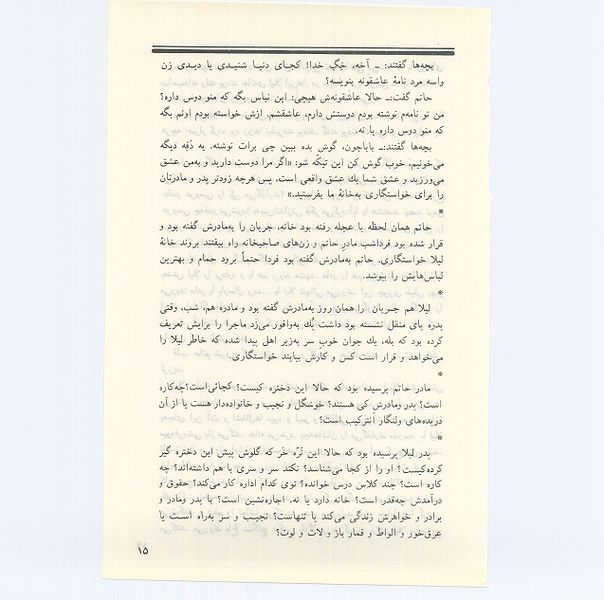 بچه‌ها گفتند: ــ آخه، خِگِ خدا! کجای دنیا شنیدی یا دیدی زن
واسه مرد نامهٔ عاشقونه بنویسه؟
حاتم گفت:ــ حالا عاشقونه‌ش هیچی؛ این نباس بگه که منو دوس داره؟
من تو نامه‌م نوشته بودم دوستش دارم، عاشقشم. ازش خواسته بودم اونم بگه
که منو دوس داره یا نه.
بچه‌ها گفتند:ــ باباجون، گوش بده ببین چی برات نوشته. یه دَفِه دیگه
می‌خونیم، خوب گوش کن این تیکّه شو: «اگر مرا دوست دارید و به‌من عشق
می‌ورزید و عشق شما یك عشق واقعی است، پس هرچه زودتر پدر و مادرتان
را برای خواستگاری به‌خانهٔ ما بفرستید.»
*
حاتم همان لحظه با عجله رفته بود خانه، جریان را به‌مادرش گفته بود و
قرار شده بود فرداشب مادر حاتم و زن‌های صاحبخانه راه بیفتند بروند خانهٔ
لیلا خواستگاری. حاتم به‌مادرش گفته بود فردا حتماً برود حمام و بهترین
لباس‌هایش را بپوشد.
*
لیلا هم جریان را همان روز به‌مادرش گفته بود و مادره هم، شب، وقتی
پدره پای منقل نشسته بود داشت پُك به‌وافور می‌زد ماجرا را برایش تعریف
کرده بود که بله، یك جوان خوب سر به‌زیر اهل پیدا شده که خاطر لیلا را
می‌خواهد و قرار است کس و کارش بیایند خواستگاری.
*
مادر حاتم پرسیده بود که حالا این دختره کیست؟ کجائی‌است؟چه‌کاره
است؟ پدر ومادرش کی هستند؟ خوشگل و نجیب و خانواده‌دار هست یا از آن
دریده‌های ولنگار آنترکیب است؟
*
پدر لیلا پرسیده بود که حالا این نَرّه خَر که گلوش پیش این دختره گیر
کرده‌کیست؟ او را از کجا می‌شناسد؟ نکند سر و سری با هم داشته‌اند؟ چه
کاره است؟ چند کلاس درس خوانده؟ توی کدام اداره کار می‌کند؟ حقوق و
درآمدش چه‌قدر است؟ خانه دارد یا نه، اجاره‌نشین است؟ با پدر ومادر و
برادر و خواهرش زندگی می‌کند یا تنهاست؟ نجیب و سر به‌راه است یا
عرق‌خور و الواط و قمار باز و لات و لوت؟
۱۵